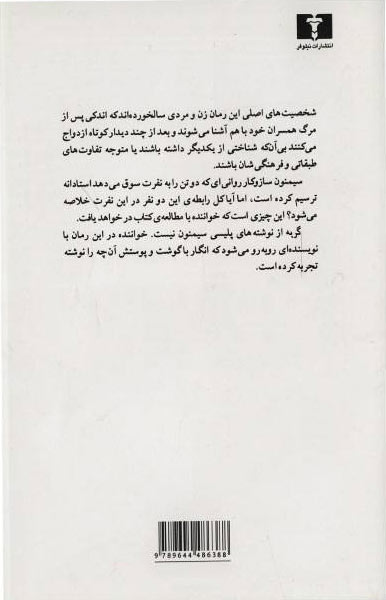 انتشارات نیلوفر
شخصیت‌های اصلی این رمان زن و مردی سالخورده‌اند که اندکی پس از
مرگ همسران خود با هم آشنا می‌شوند و بعد از چند دیدار کوتاه ازدواج
می‌کنند بی‌آن‌که شناختی از یکدیگر داشته باشند یا متوجه تفاوت‌های
طبقاتی و فرهنگی‌شان باشند.
سیمنون سازوکار روانی‌ای که دو تن را به نفرت سوق می‌دهد استادانه
ترسیم کرده است، اما آیا کل رابطه‌ی این دو نفر در این نفرت خلاصه
می‌شود؟ این چیزی است که خواننده با مطالعه‌ی کتاب در خواهد یافت.
گربه از نوشته‌های پلیسی سیمنون نیست. خواننده در این رمان با
نویسنده‌ای روبه‌رو می‌شود که انگار با گوشت و پوستش آن‌چه را نوشته
تجربه کرده است.
9 789644 486388